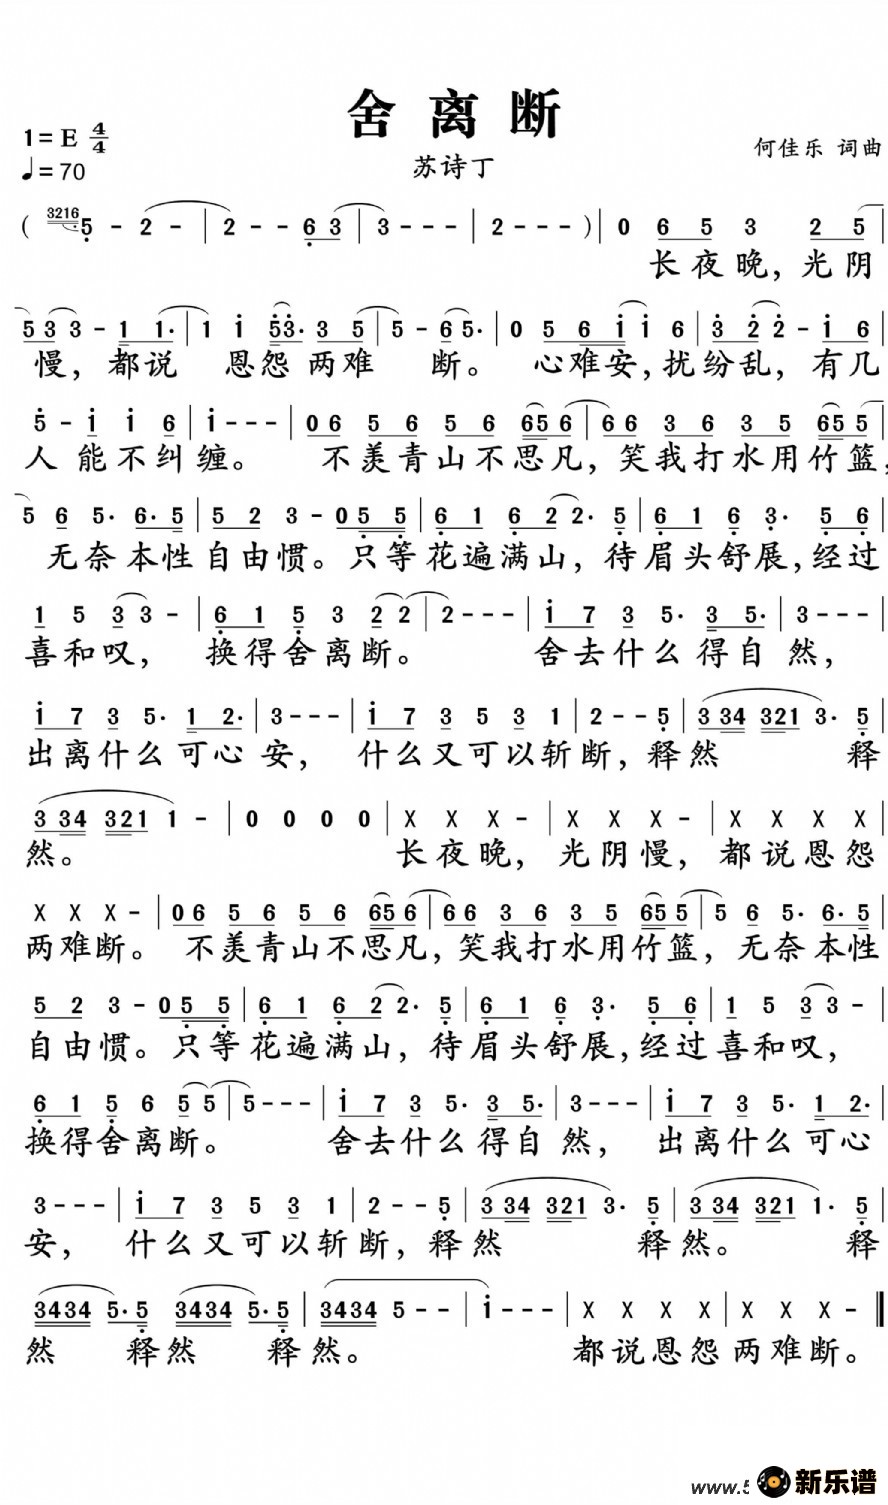 舍离断
1=E 4/4
♩=70
苏诗丁
何佳乐 词曲
( 3216 5 - 2 - | 2 - - 6 3 | 3 - - - | 2 - - - ) | 0 6 5 3 2 5 |
长夜晚，光阴
5 3 3 - 1 1· | 1 i 5 3· 3 5 | 5 - 6 5· | 0 5 6 i i 6 | 3 2 2 - i 6 |
慢，都说 恩怨两难 断。 心难安，扰纷乱，有几
5 - i i 6 | i - - - | 0 6 5 6 5 6 6 5 6 | 6 6 3 6 3 5 6 5 5 |
人能不纠缠。 不羡青山不思凡，笑我打水用竹篮，
5 6 5· 6· 5 | 5 2 3 - 0 5 5 | 6 1 6 2 2· 5 | 6 1 6 3· 5 6 |
无奈本性自由惯。只等花遍满山，待眉头舒展，经过
1 5 3 3 - | 6 1 5 3 2 2 | 2 - - - | i 7 3 5· 3 5· | 3 - - - |
喜和叹， 换得舍离断。 舍去什么得自然，
i 7 3 5· 1 2· | 3 - - - | i 7 3 5 3 1 | 2 - - 5 | 3 34 321 3· 5 |
出离什么可心安， 什么又可以斩断，释然 释
3 34 321 1 - | 0 0 0 0 | X X X - | X X X - | X X X X |
然。 长夜晚，光阴慢，都说恩怨
X X X - | 0 6 5 6 5 6 65 6 | 6 6 3 6 3 5 65 5 | 5 6 5· 6· 5 |
两难断。不羡青山不思凡，笑我打水用竹篮，无奈本性
5 2 3 - 0 5 5 | 6 1 6 2 2· 5 | 6 1 6 3· 5 6 | 1 5 3 3 - |
自由惯。只等花遍满山，待眉头舒展，经过喜和叹，
6 1 5 6 5 5 | 5 - - - | i 7 3 5· 3 5· | 3 - - - | i 7 3 5· 1 2· |
换得舍离断。 舍去什么得自然， 出离什么可心
3 - - - | i 7 3 5 3 1 | 2 - - 5 | 3 34 321 3· 5 | 3 34 321 1· 5 |
安， 什么又可以斩断，释然 释然。 释
3434 5· 5 3434 5· 5 | 3434 5 - - | i - - - | X X X X | X X X - ‖
然 释然 释然。 都说恩怨两难断。
www.5
新乐谱